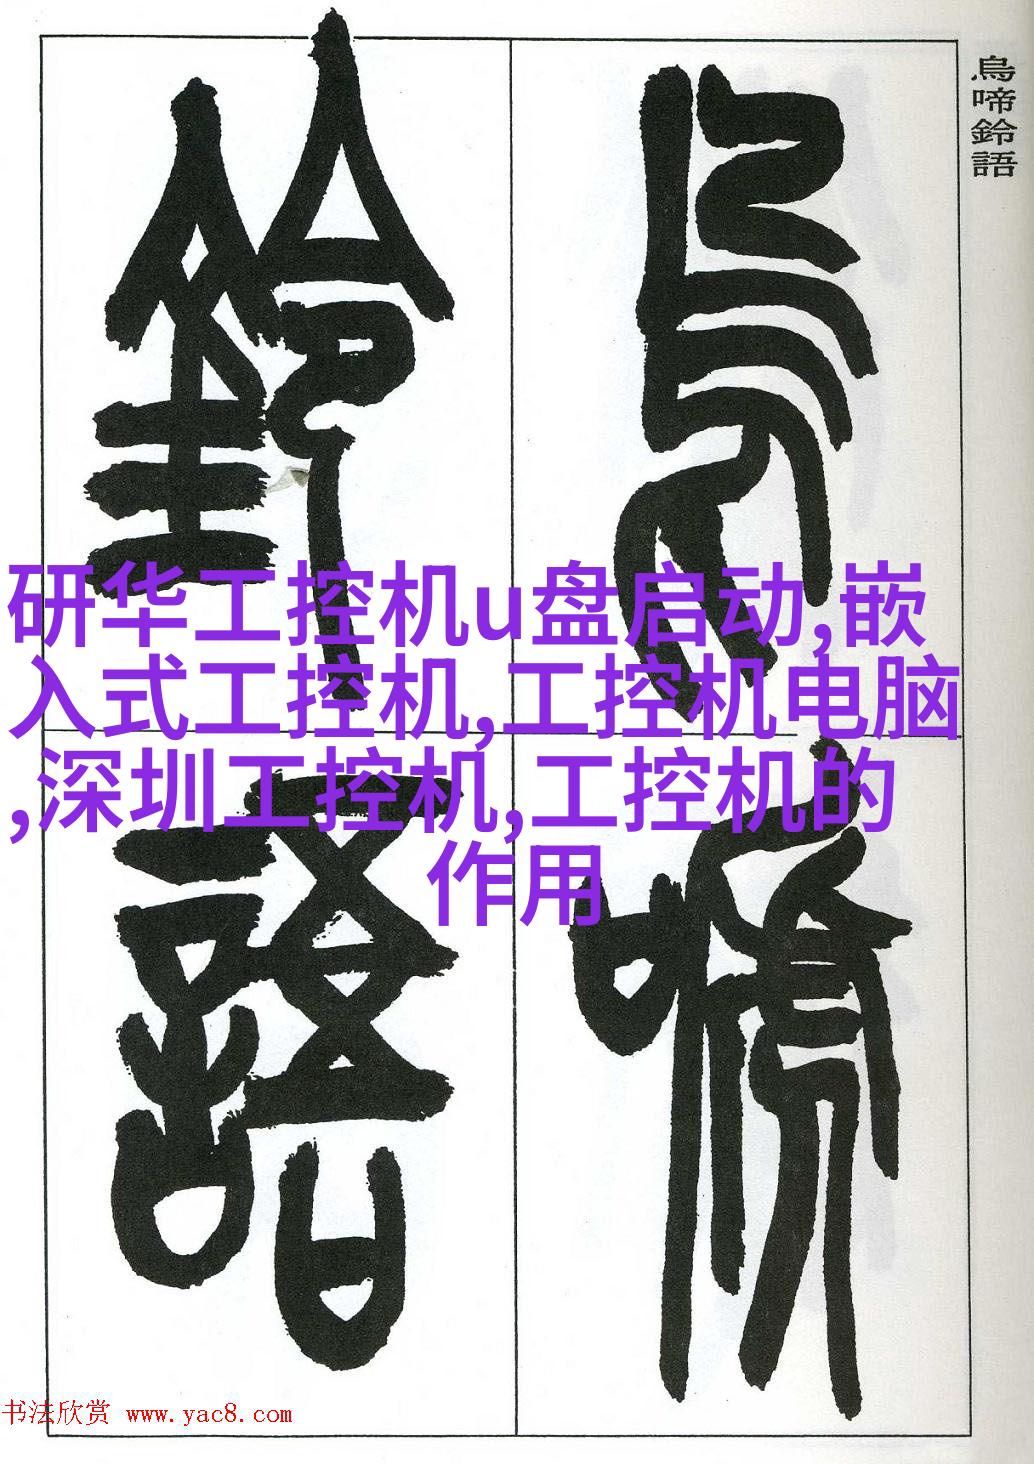 烏啼鈴語
烏啼
鈴語
研华工控机u盘启动,嵌
入式工控机,工控机电脑
,深圳工控机,工控机的
作用
书法欣赏 www.yac8.com